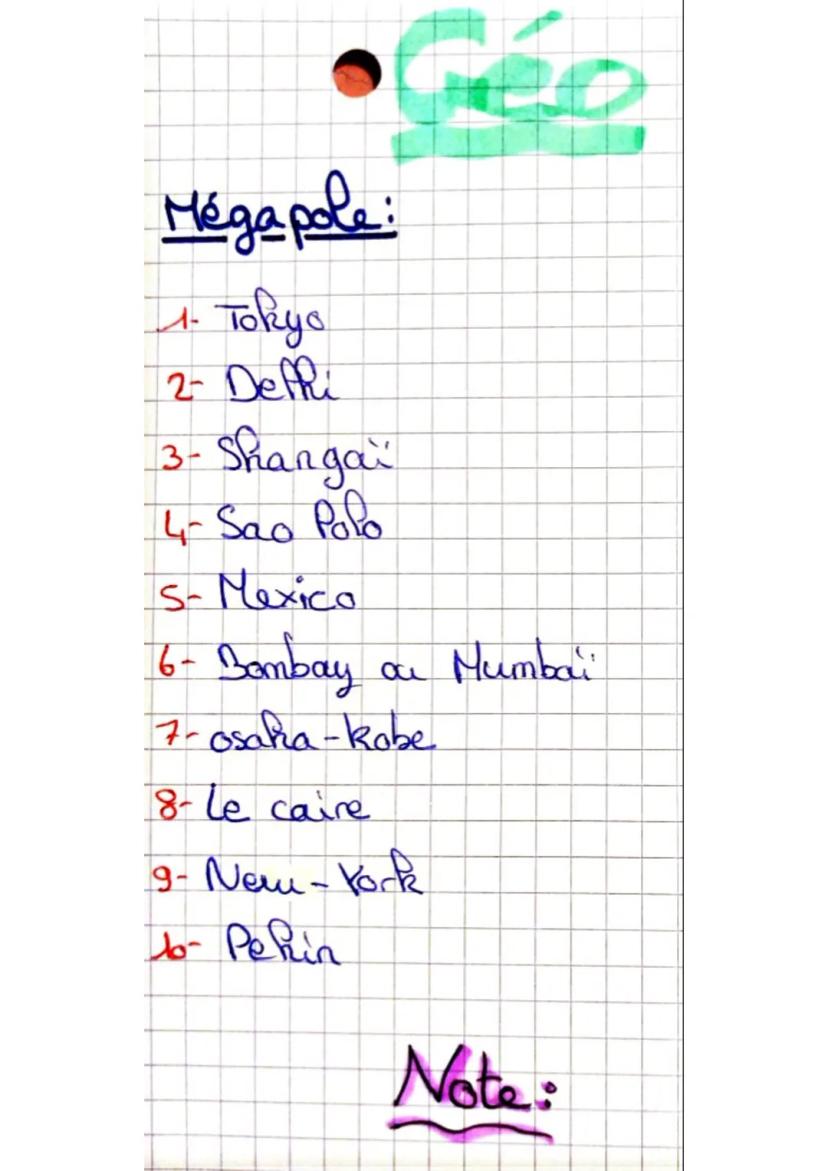 Géo
Mégapole:
1- Tokyo
2- Delhi
3- Shangaï
4- Sao Polo
5- Mexico
6- Bombay ou Mumbaï
7- osaka-kobe
8- Le caire
9- New-York
10- Pekin
Note: